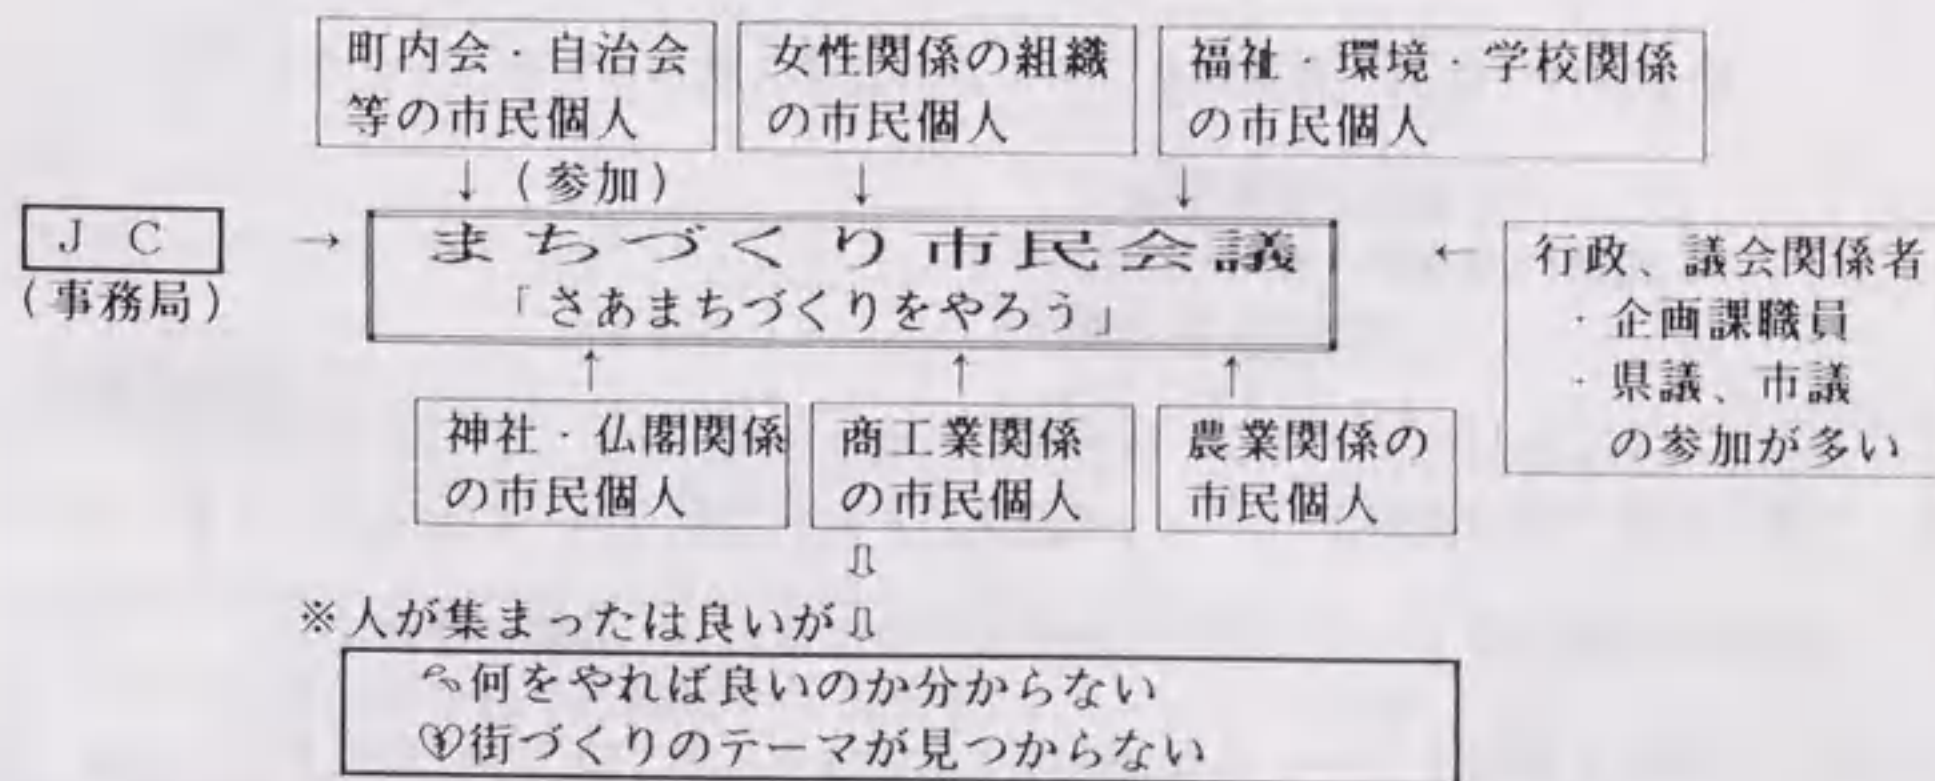 町内会・自治会
等の市民個人
女性関係の組織
の市民個人
福祉・環境・学校関係
の市民個人
↓（参加） ↓ ↓
ＪＣ
（事務局）
→
まちづくり市民会議
「さあまちづくりをやろう」
←
行政、議会関係者
・企画課職員
・県議、市議
の参加が多い
↑ ↑ ↑
神社・仏閣関係
の市民個人
商工業関係
の市民個人
農業関係の
市民個人
⇩
※人が集まったは良いが⇩
何をやれば良いのか分からない
街づくりのテーマが見つからない